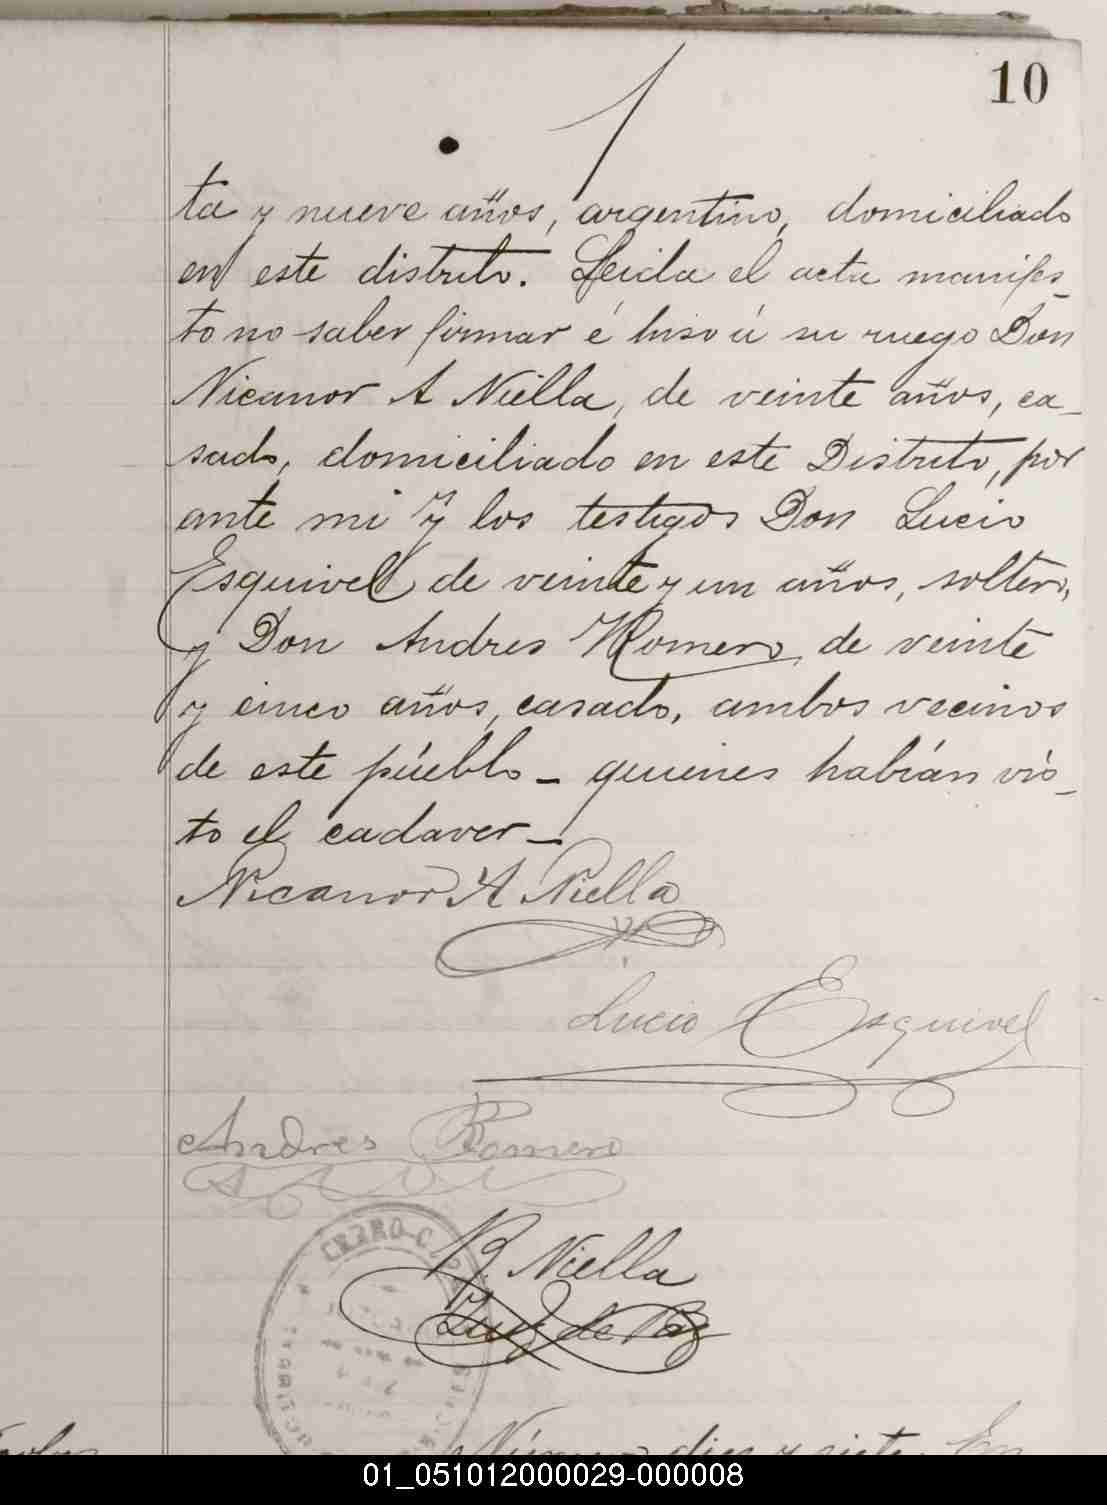 10
ta y nueve años, argentino, domiciliado
en este distrito. Leida el acta manifes_
to no saber firmar é hiso á su ruego Don
Nicanor A Niella, de veinte años, ca_
sado, domiciliado en este Distrito, por
ante mi y los testigos Don Lucio
Esquivel de veinte y un años, soltero,
y Don Andres Romero, de veinte
y cinco años, casado, ambos vecinos
de este púeblo _ quienes habían vis_
to el cadaver _
Nicanor A Niella
Lucio Esquivel
Andres Romero
R. Niella
Juez de Paz
Número diez y siete. En
01_051012000029-000008